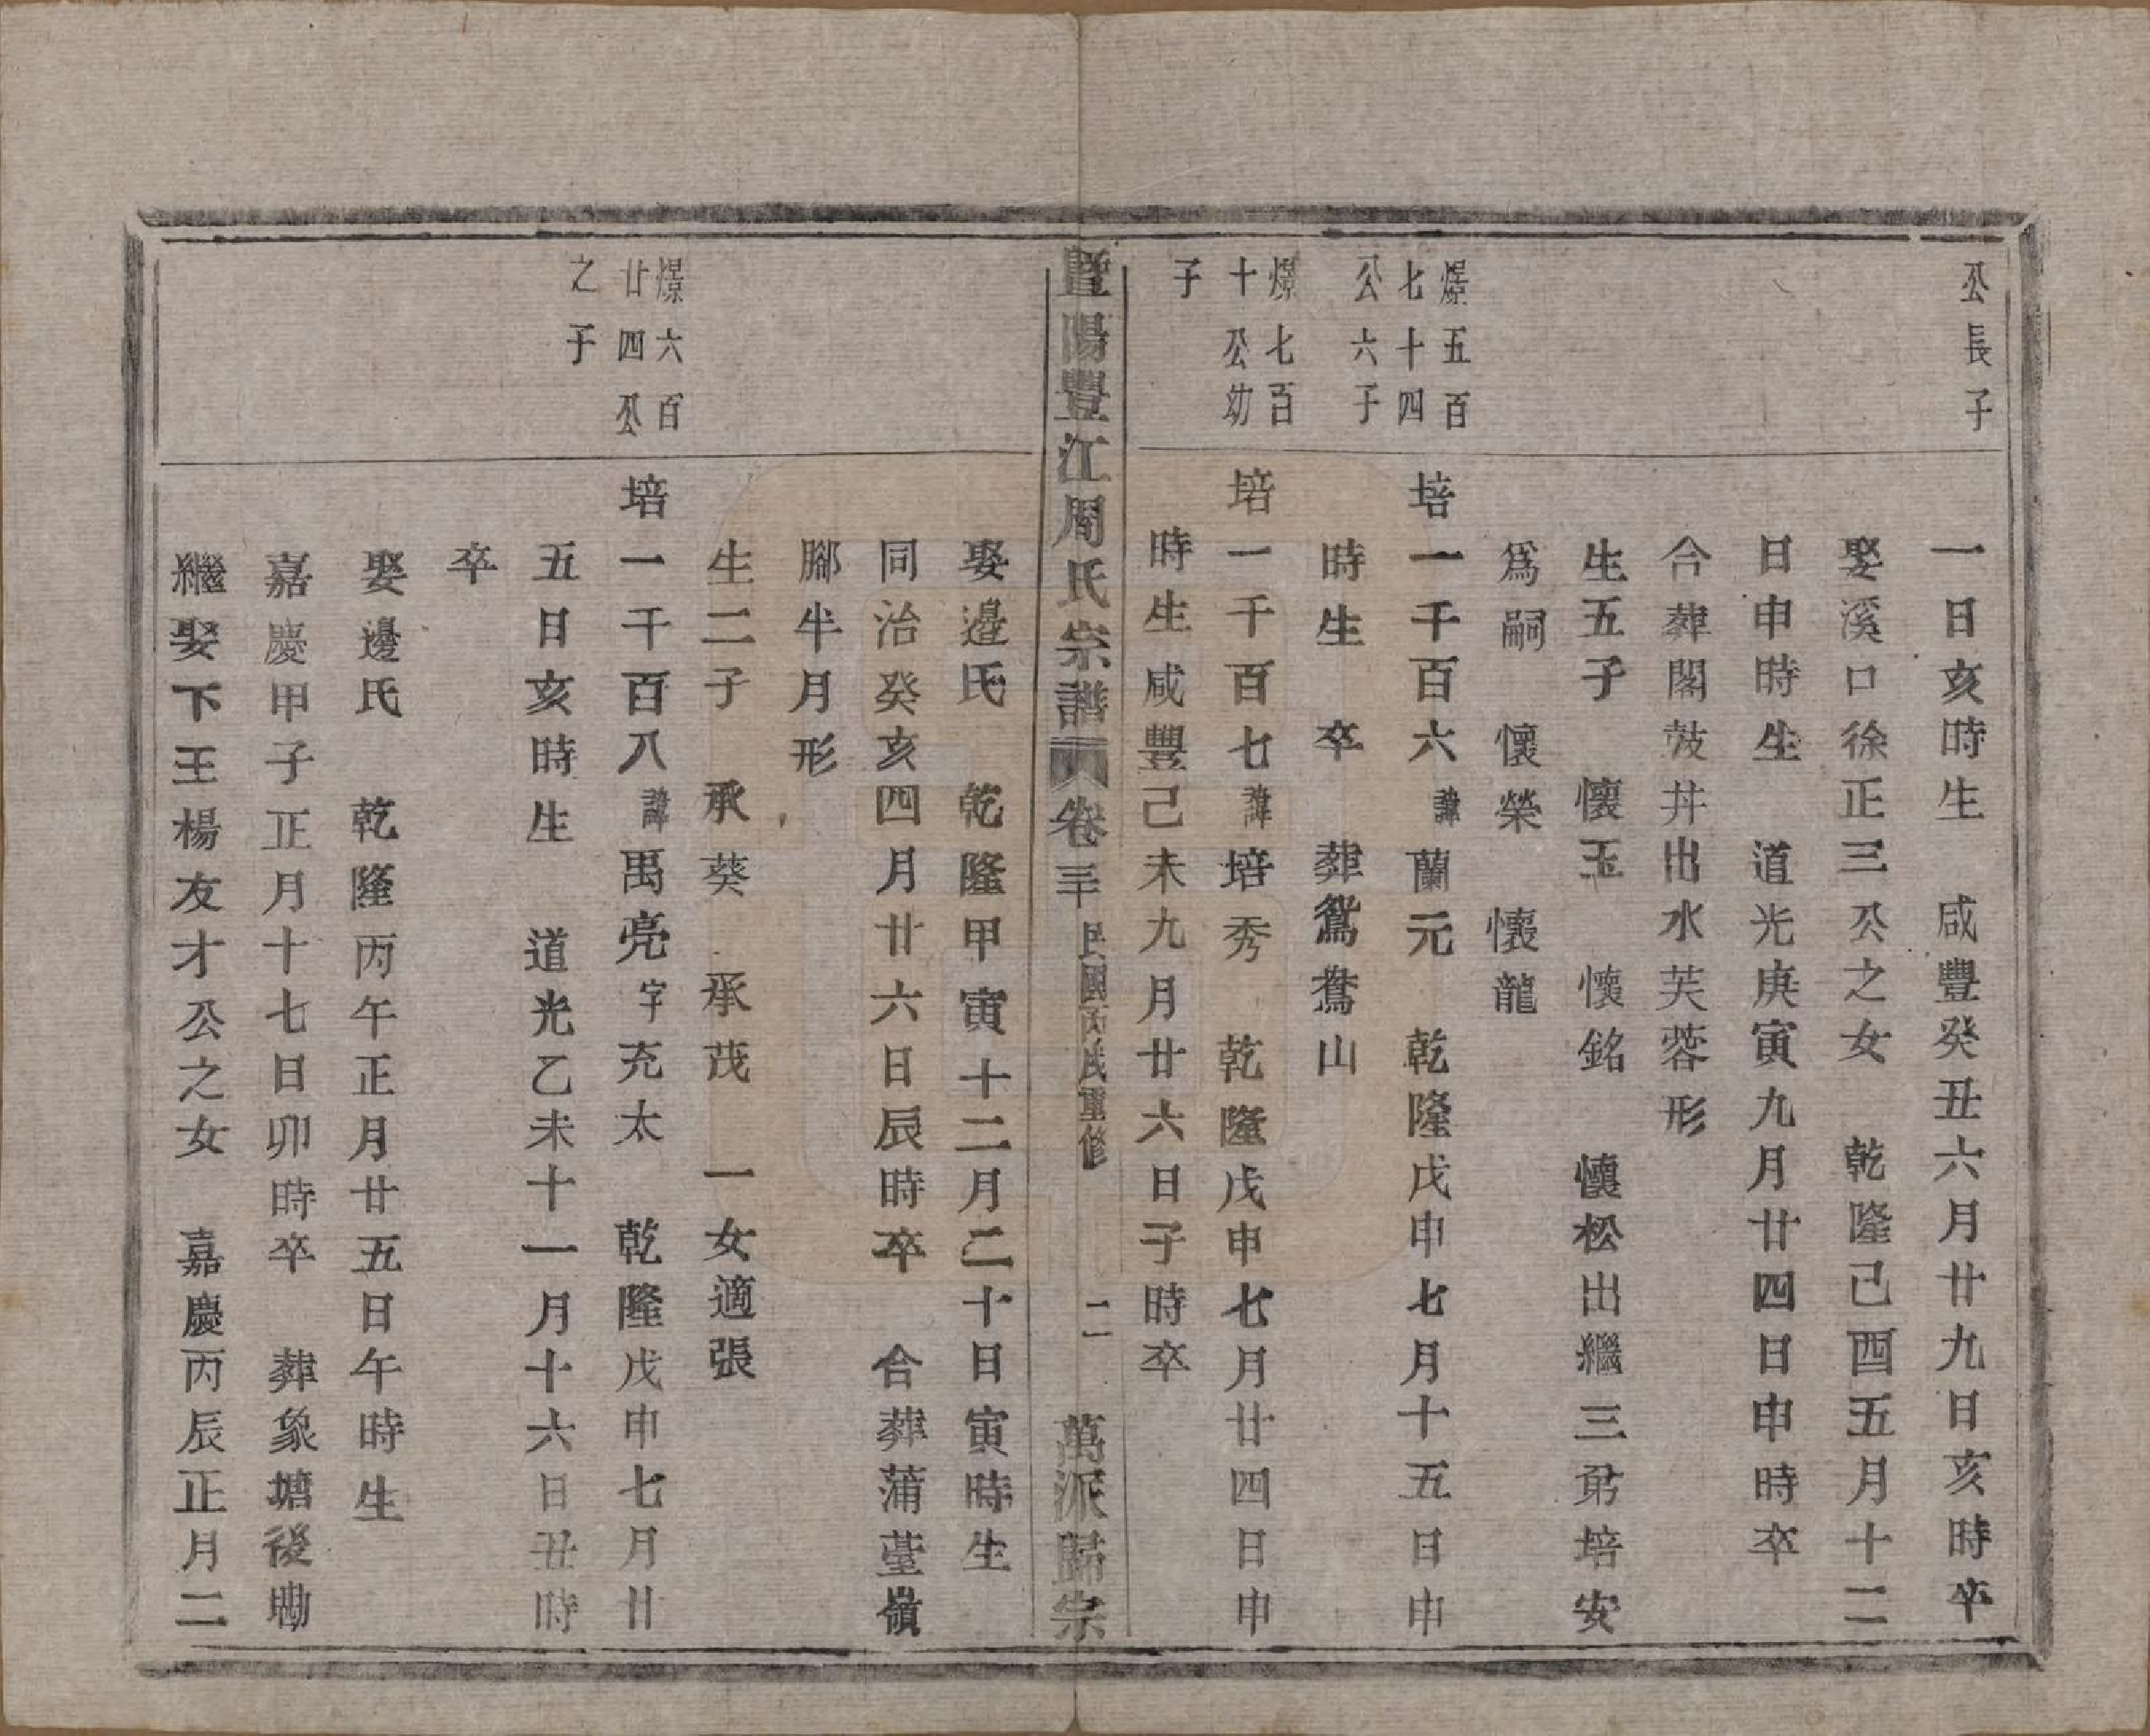 公長子
一日亥時生　咸豐癸丑六月廿九日亥時卒
娶溪口徐正三公之女　乾隆己酉五月十二
日申時生　道光庚寅九月廿四日申時卒
合葬閣鼓井出水芙蓉形
生五子　懷玉　懷銘　懷松出繼三弟培安
爲嗣　懷榮　懷龍
爆五百
七十四
公六子
培一千百六諱蘭元　乾隆戊申七月十五日申
時生　卒　葬鴛鴦山
爆七百
十公幼
子
培一千百七諱培秀　乾隆戊申七月廿四日申
時生咸豐己未九月廿六日子時卒
暨陽豐江周氏宗譜　卷三十　民國丙戌重修　二　萬派歸宗
娶邊氏　乾隆甲寅十二月二十日寅時生
同治癸亥四月廿六日辰時卒　合葬蒲臺嶺
腳半月形
生二子　承葵　承茂　一女適張
爆六百
廿四公
之子
培一千百八諱禹亮字充太　乾隆戊申七月廿
五日亥時生　道光乙未十一月十六日丑時
卒
娶邊氏　乾隆丙午正月廿五日午時生
嘉慶甲子正月十七日卯時卒　葬象塘後坳
繼娶下王楊友才公之女　嘉慶丙辰正月二